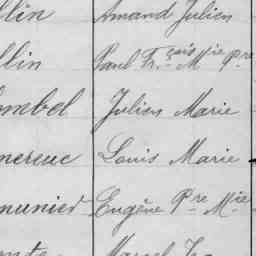 llin Amand Julien
llin Paul Fr.çois Mie Pre
ombel Julien Marie
nereuc Louis Marie
munier Eugène Pre Mie